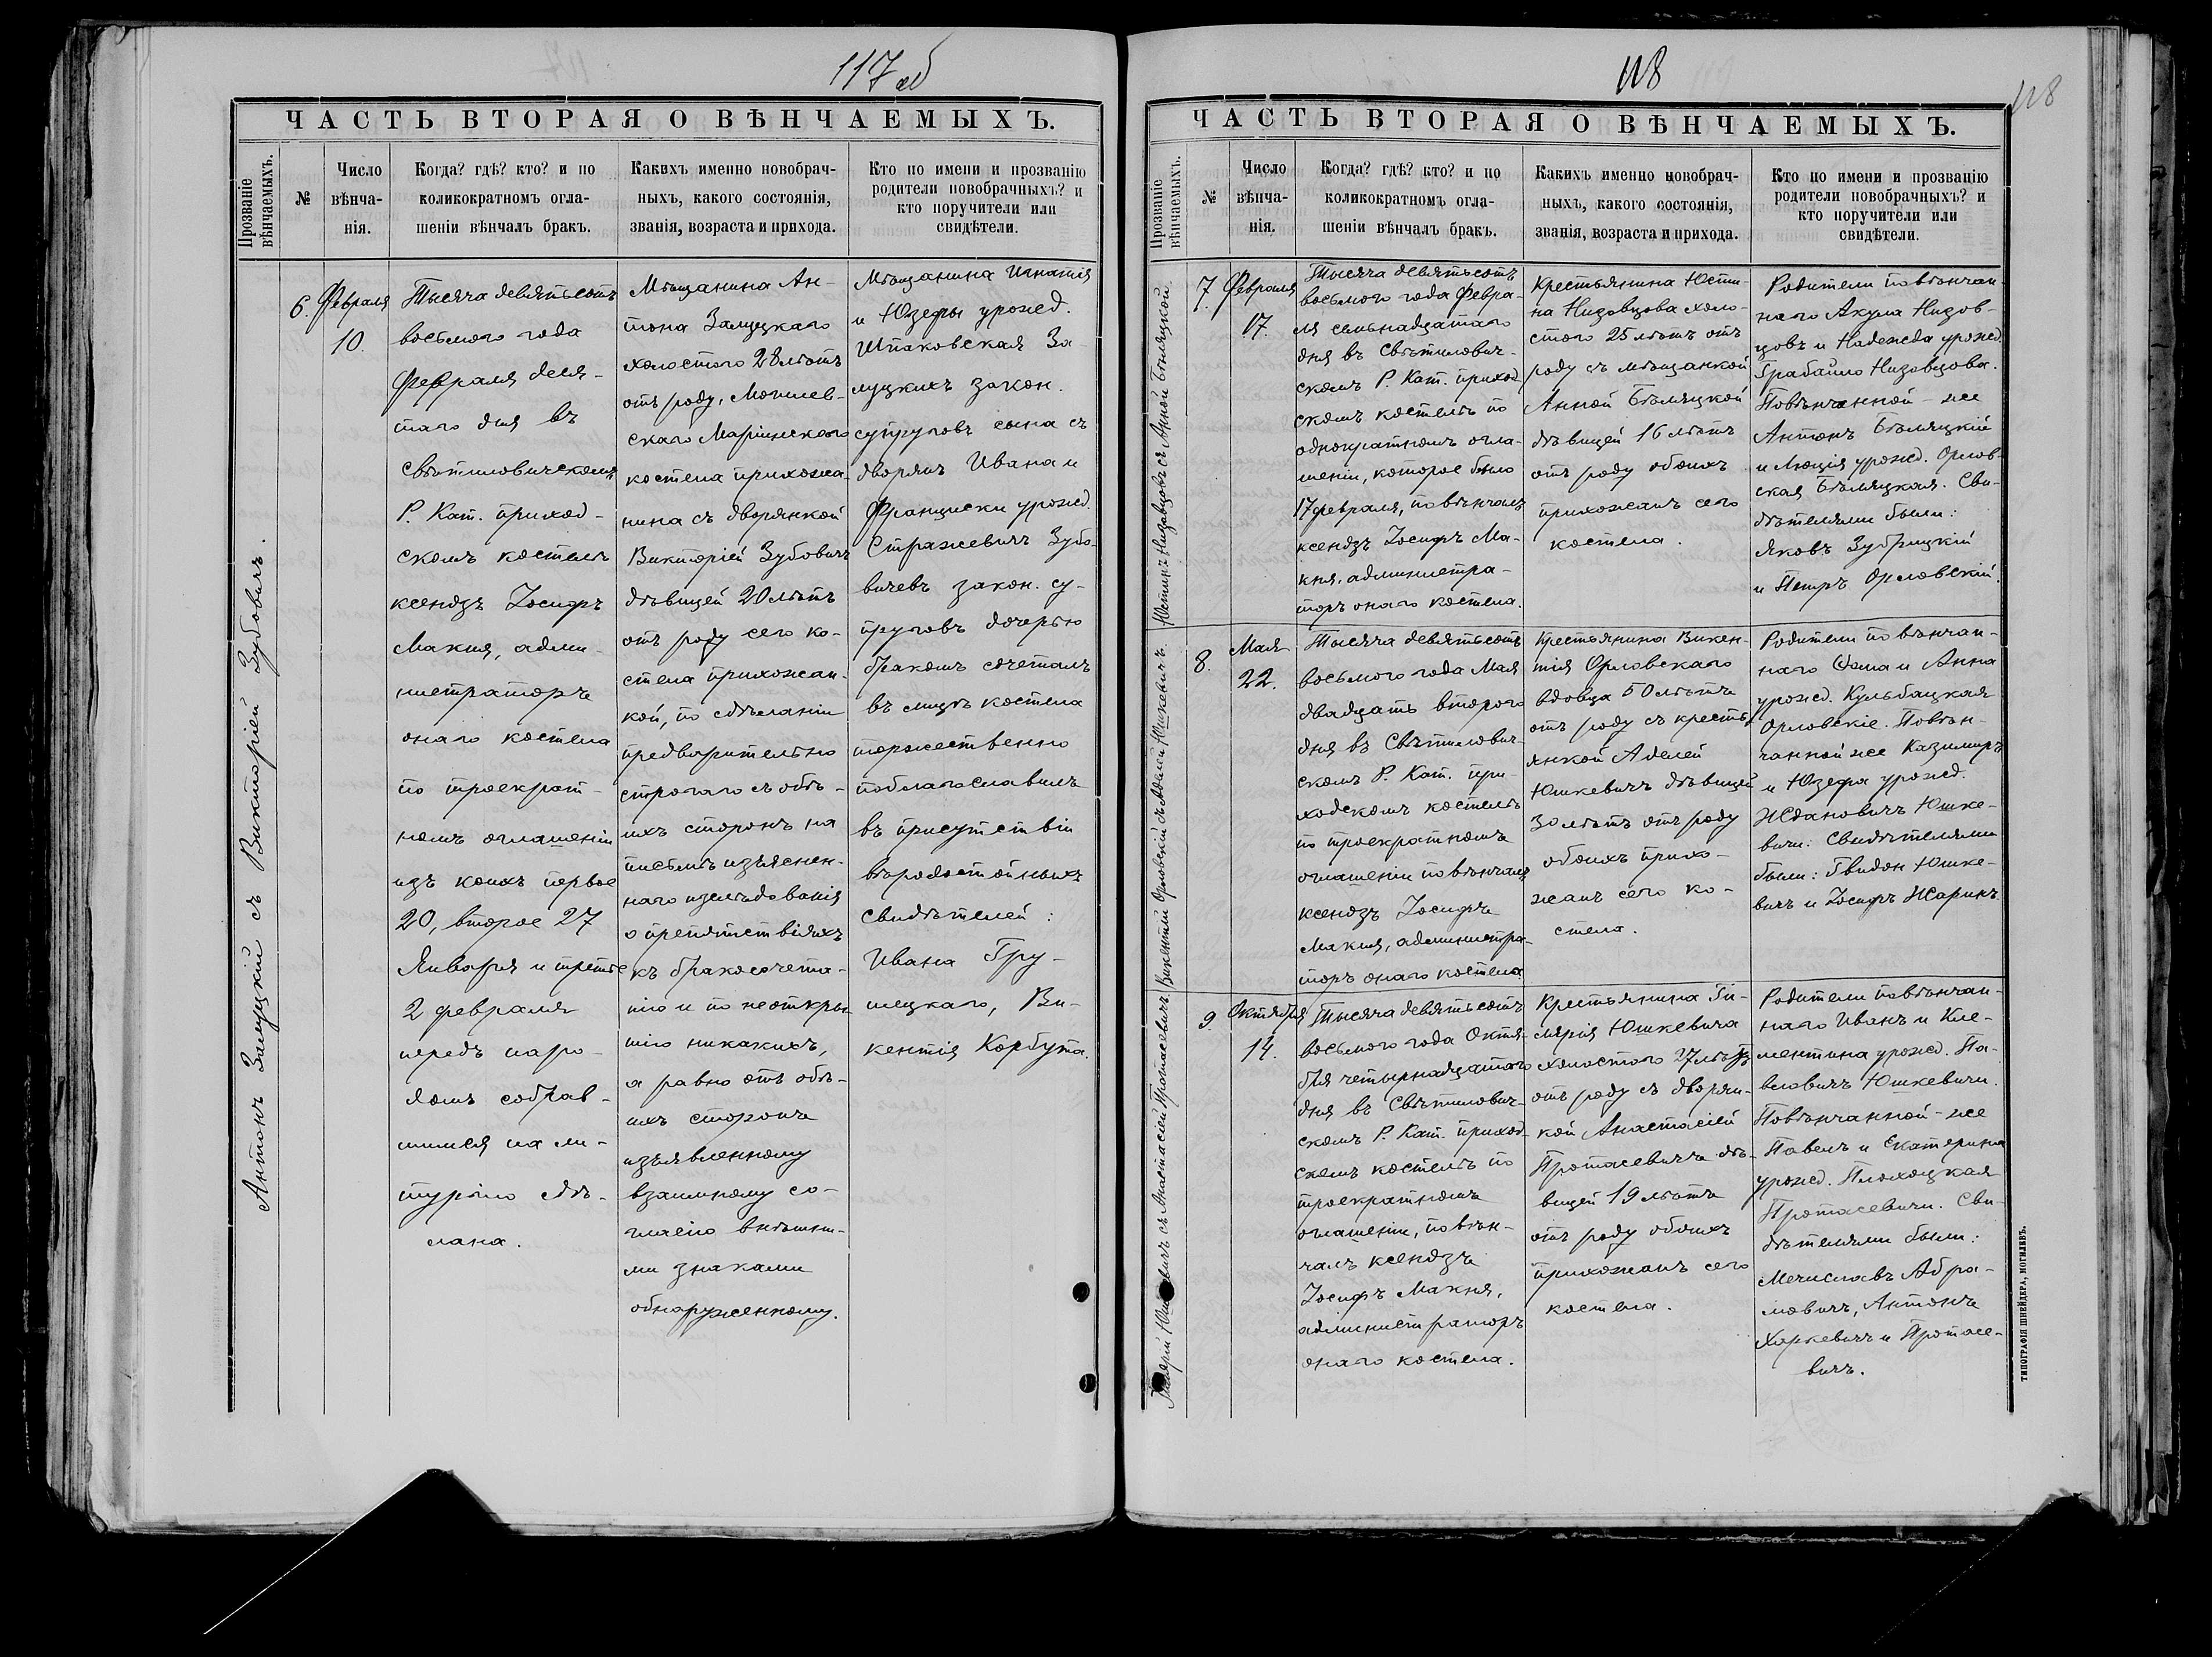 117 об
ЧАСТЬ ВТОРАЯ О ВѢНЧАЕМЫХЪ.
Прозваніе
вѣнчаемыхъ.
№
Число
вѣнча-
нія.
Когда? гдѣ? кто? и по
коликократномъ огла-
шеніи вѣнчалъ бракъ.
Какихъ именно новобрач-
ныхъ, какого состоянія,
званія, возраста и прихода.
Кто по имени и прозванію
родители новобрачныхъ? и
кто поручители или
свидѣтели.
Антонъ Залуцкій съ Викторіей Зубовичъ.
6.
Февраля
10.
Тысяча девятьсотъ
восьмого года
Февраля деся-
таго дня въ
Свѣтиловическомъ
Р. Кат. приход-
скомъ костелѣ
ксендзъ Іосифъ
Макня, адми-
нистраторъ
онаго костела
по троекрат-
номъ оглашеніи
изъ коихъ первое
20, второе 27
Января и третье
2 февраля
передъ наро-
домъ собрав-
шимся на ли-
тургію сдѣ-
лана.
Мѣщанина Ан-
тона Залуцкаго
холостого 28 лѣтъ
отъ роду, Могилев-
скаго Маріинскаго
костела прихожа-
нина съ дворянкой
Викторіей Зубовичъ
дѣвицей 20 лѣтъ
отъ роду сего ко-
стела прихожан-
кой, по сдѣланіи
предварительно
строгаго съ обѣ-
ихъ сторонъ на
письмѣ изъяснен-
наго изслѣдованія
о препятствіяхъ
къ бракосочета-
нію и по неоткры-
тію никакихъ,
а равно отъ обѣ-
ихъ сторонъ
изъявленному
взаимному со-
гласію внѣшни-
ми знаками
обнаруженному.
Мѣщанина Игнатія
и Юзефы урожд.
Шпаковская За-
луцкихъ закон.
супруговъ сына съ
дворянъ Ивана и
Франциски урожд.
Стражевичъ Зубо-
вичевъ закон. су-
пруговъ дочерью
бракомъ сочеталъ
въ лицѣ костела
торжественно
поблагославилъ
въ присутствіи
вѣродостойныхъ
свидѣтелей:
Ивана Гру-
шецкаго, Ви-
кентія Корбута.
118
118
ЧАСТЬ ВТОРАЯ О ВѢНЧАЕМЫХЪ.
Прозваніе
вѣнчаемыхъ.
№
Число
вѣнча-
нія.
Когда? гдѣ? кто? и по
коликократномъ огла-
шеніи вѣнчалъ бракъ.
Какихъ именно новобрач-
ныхъ, какого состоянія,
званія, возраста и прихода.
Кто по имени и прозванію
родители новобрачныхъ? и
кто поручители или
свидѣтели.
Юстинъ Низовцовъ съ Анной Бѣляцкой.
7.
Февраля
17.
Тысяча девятьсотъ
восьмого года Февра-
ля семьнадцатаго
дня въ Свѣтилович-
скомъ Р. Кат. приход-
скомъ костелѣ по
однократномъ огла-
шеніи, которое было
17 февраля, повѣнчалъ
ксендзъ Іосифъ Ма-
кня, администра-
торъ онаго костела.
Крестьянина Юсти-
на Низовцова холо-
стого 25 лѣтъ отъ
роду съ мѣщанкой
Анной Бѣляцкой
дѣвицей 16 лѣтъ
отъ роду обоихъ
прихожанъ сего
костела.
Родители повѣнчан-
наго Акула Низов-
цовъ и Надежда урожд.
Грабайло Низовцова.
Повѣнчанной-же
Антонъ Бѣляцкій
и Люція урожд. Орлов-
ская Бѣляцкая. Сви-
дѣтелями были:
Яковъ Зубрицкій
и Петръ Орловскій.
Викентій Орловскій съ Аделей Юшкевичъ.
8.
Мая
22.
Тысяча девятьсотъ
восьмого года Мая
двадцать второго
дня въ Свѣтилович-
скомъ Р. Кат. при-
ходскомъ костелѣ
по троекратномъ
оглашеніи повѣнчалъ
ксендзъ Іосифъ
Макня, администра-
торъ онаго костела
Крестьянина Викен-
тія Орловскаго
вдовца 50 лѣтъ
отъ роду съ кресть-
янкой Аделей
Юшкевичъ дѣвицей
30 лѣтъ отъ роду
обоихъ прихо-
жанъ сего ко-
стела.
Родители повѣнчан-
наго Ѳома и Анна
урожд. Кульбацкая
Орловскіе. Повѣн-
чанной же Казимиръ
и Юзефа урожд.
Ждановичъ Юшке-
вичи. Свидѣтелями
были: Гвидон Юшке-
вичъ и Іосифъ Жаринъ.
съ Анастасіей Протасевичъ
9
Октября
14.
Тысяча девятьсотъ
восьмого года Октя-
бря четырнадцатаго
дня въ Свѣтилович-
скомъ Р. Кат. приход-
скомъ костелѣ по
троекратномъ
оглашеніи, повѣн-
чалъ ксендзъ
Іосифъ Макня,
администраторъ
онаго костела.
Крестьянина Ги-
лярія Юшкевича
холостого 27 лѣтъ
отъ роду съ дворян-
кой Анастасіей
Протасевичъ дѣ-
вицей 19 лѣтъ
отъ роду обоихъ
прихожанъ сего
костела.
Родители повѣнчан-
наго Иванъ и Кле-
ментина урожд. Па-
вловичъ Юшкевичи.
Повѣнчанной-же
Павелъ и Екатерина
урожд. Плохоцкая
Протасевичи. Сви-
дѣтелями были:
Мечиславъ Абра-
мовичъ, Антонъ
Харкевичъ и Протасе-
вичъ.
ТИПОГРАФІЯ ШНЕЙДЕРА, МОГИЛЕВЪ.